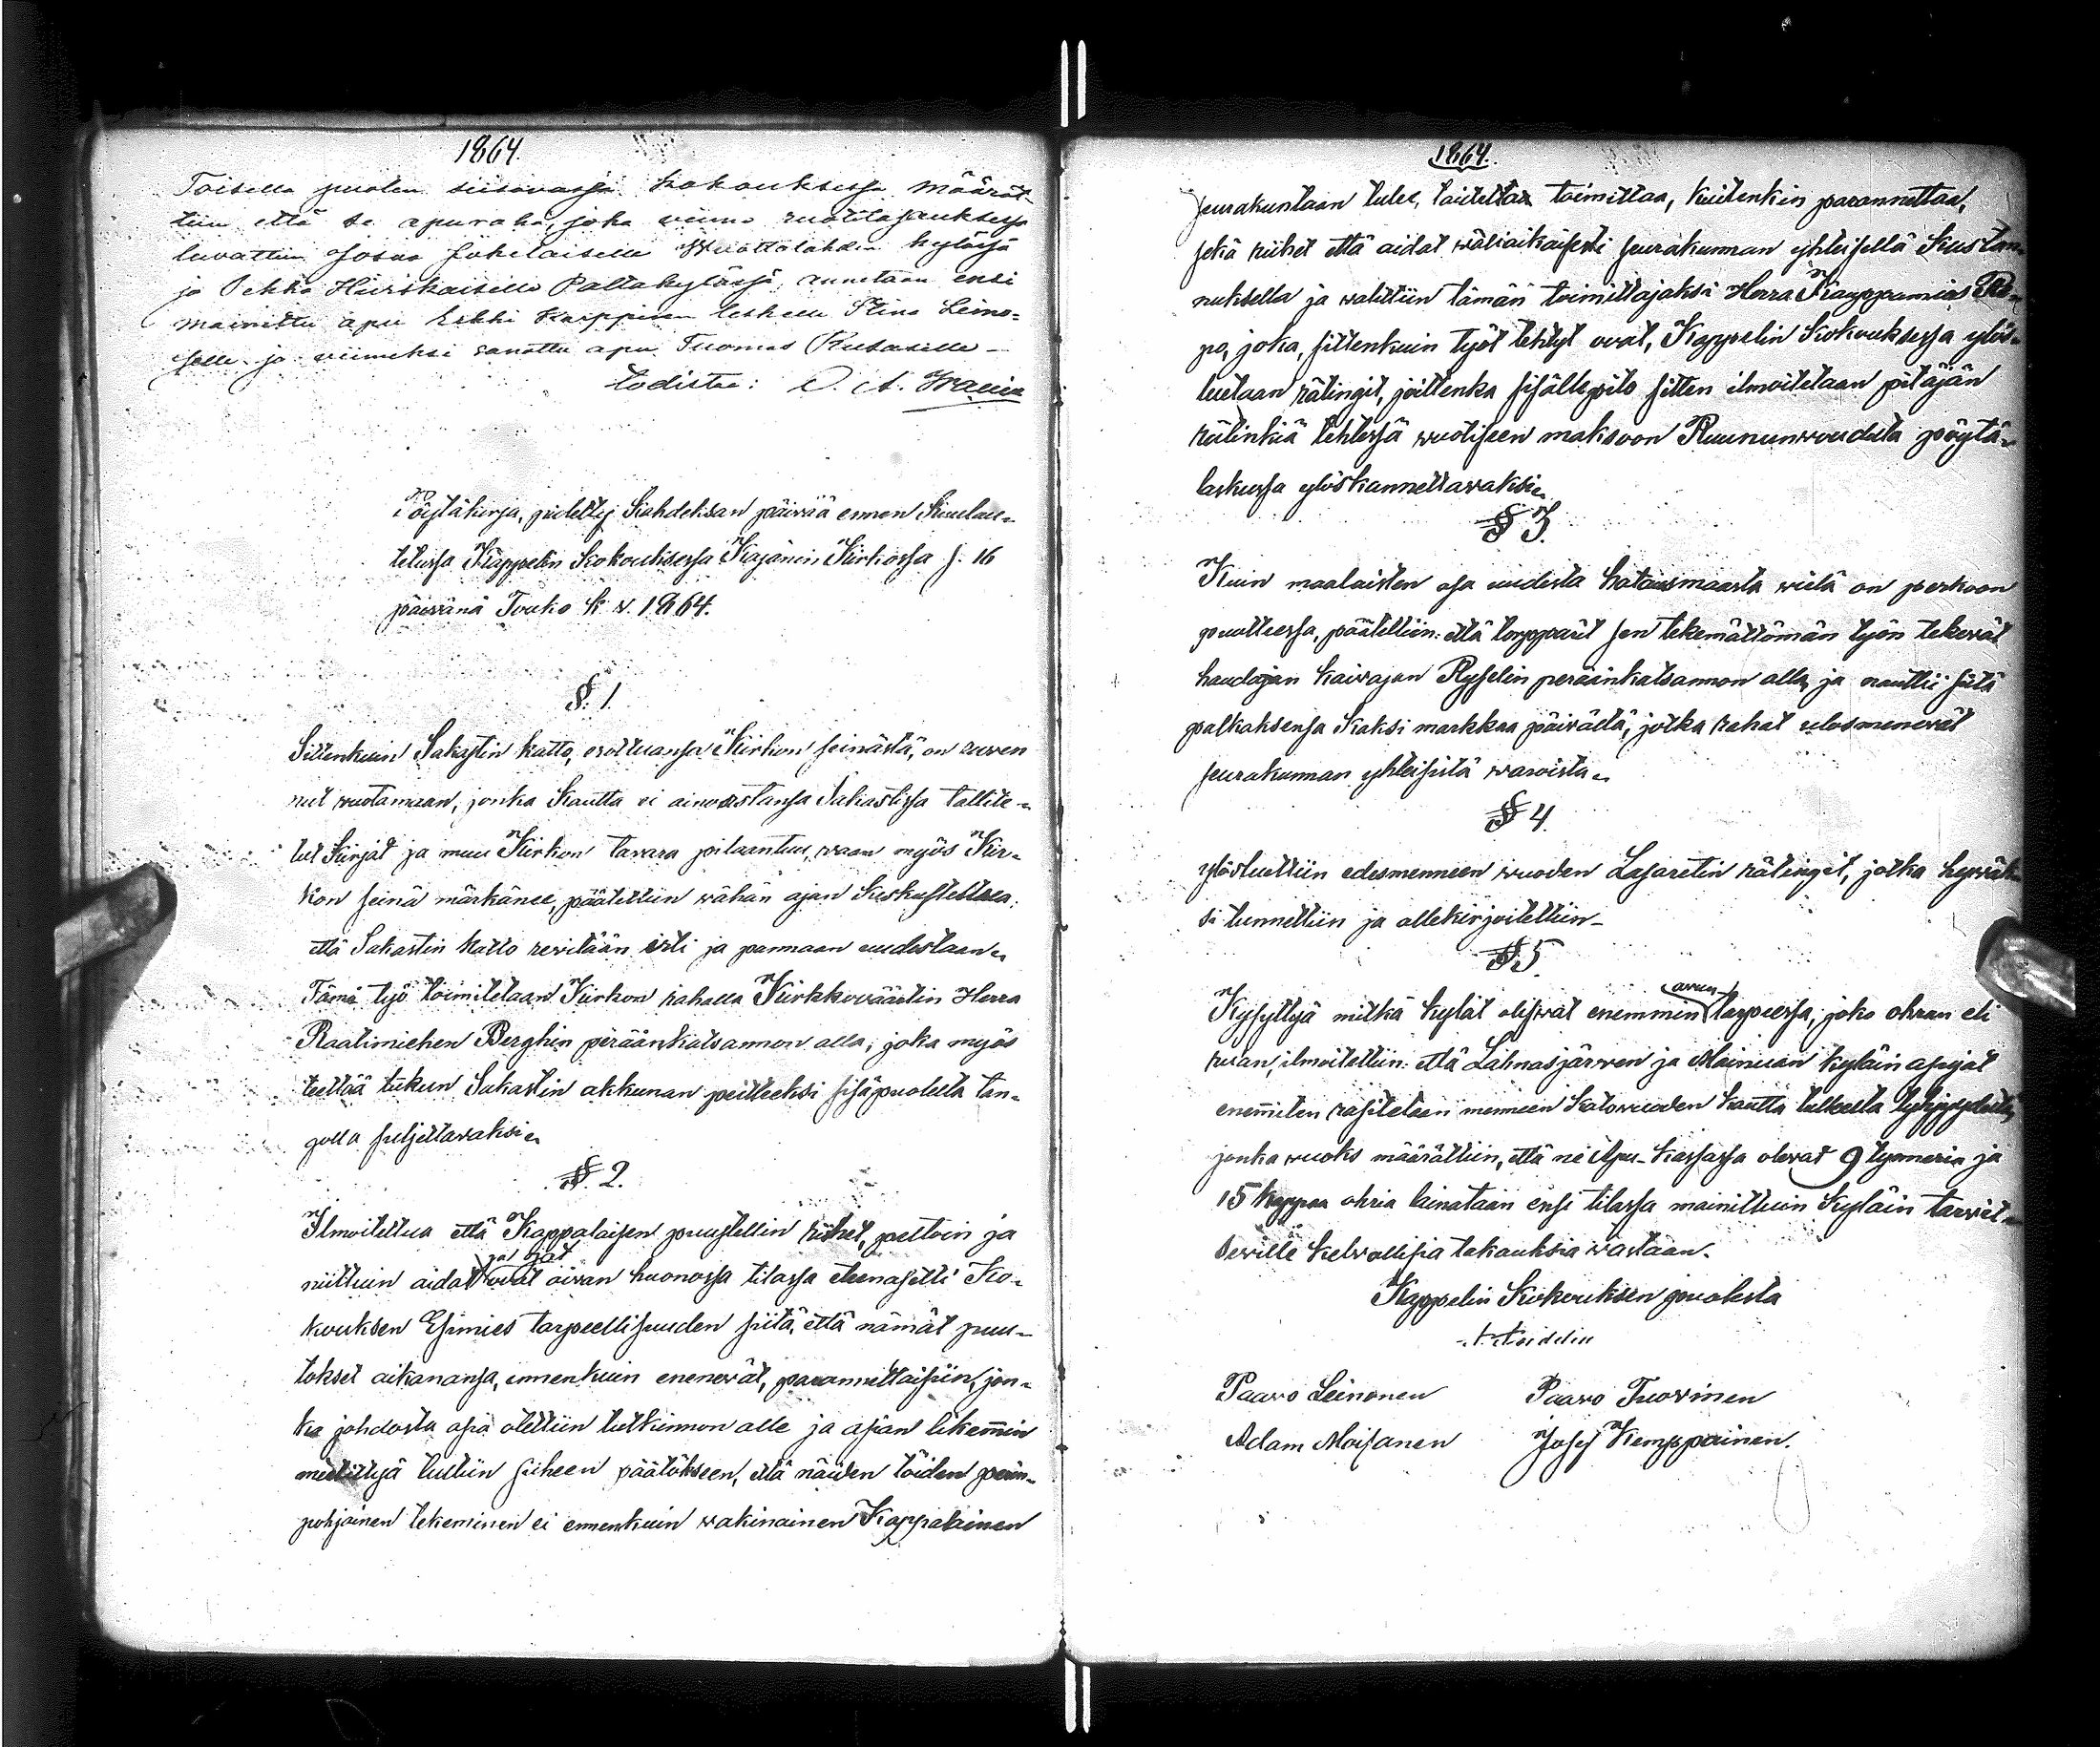 1864.
Toisella puolen seisovassa kokouksessa määrät-
tiin että se apuraha, joka viime ruotitajauksessa
luvattiin Josua Juhelaiselle Wuottolahden kylässä
ja Pekka Hiiriskaiselle Paltakylässä, annetaan ensi
mainittu apu Erkki Karppisen leskelle Stina Leino-
selle ja viimeksi sanottu apu Tuomas Rusaselle –
todistaa:
Pöytäkirja, pidetty Kahdeksan päivää ennen Kuulau-
tetussa Kappelin Kokouksessa Kajanin Kirkossa s. 16
päivänä Touko k. v. 1864.
§. 1.
Sittenkuin Sakastin katto, erottuansa Kirkon seinästä, on ruven
nut wuotamaan, jonka kautta ei ainoastansa Sakastissa tallite-
tut Kirjat ja muu Kirkon tavara pilaantuu, waan myös Kir-
kon seinä märkänee, päätettiin wähän ajan keskusteltua:
että Sakastin katto revitään irti ja pannaan uudestaan.
Tämä työ toimitetaan Kirkon rahalla Kirkkoväärtin Herra
Raatimiehen Berghin peräänkatsannon alla, joka myös
teettää lukun Sakastin akkunan peitteeksi sisäpuolelta tan-
golla suljettavaksi.
§. 2.
Ilmoitettua että Kappalaisen puustellin riihet, peltoin ja
niittuin aidat ovat aivan huonossa tilassa eteenasetti Ko-
kouksen Esimies tarpeellisuuden siitä, että nämät puu-
tokset aikanansa, ennenkuin enenevät, parannettaisiin, jon-
ka johdosta asia otettiin tutkinnon alle ja asian likemmin
mietittyä tultiin siiheen päätökseen, että näiden töiden perin-
pohjainen tekeminen ei ennenkuin wakinainen Kappalainen
1864.
seurakuntaan tulee, taideta toimittaa, kuitenkin parannettaa,
sekä riihet että aidat wäliaikaisesti seurakunnan yhteisellä kustan-
nuksella ja walittiin tämän toimittajaksi Herra Kauppamies Re-
po, joka, sittenkuin työt tehdyt ovat, Kappelin Kokouksessa ylös-
luetaan rätingit, joittenka sisällepito sitten ilmoitetaan pitäjän
rätinkiä tehtessä wuotiseen maksoon Ruununwoudilta pöytä-
laskussa ylöskannettavaksi.
§ 3.
Kuin maalaisten osa uudesta hatausmaasta wielä on perkoon
puutteessa, päätettiin: että torpparit sen tekemättömän työn tekevät
haudajan kaivajan Ryselin peräänkatsannon alla, ja nauttii siitä
palkaksensa kaksi markkaa päivältä, jotka rahat ulosmenevät
seurakunnan yhteisistä waroista.
§ 4.
ylösluettiin edesmenneen wuoden Lasaretin rätingit, jotka hywäk-
si tunnettiin ja allekirjoitettiin –
§ 5.
Kysyttyä mitkä kylät olisivat enemmin avun tarpeessa, joko ohran eli
rukiin, ilmoitettiin: että Lahnasjärwen ja Mainuan kyläin asujat
enemmiten rasiteteen menneen katowuoden kautta tulleelta
jonka wuoks määrättiin, että ne Apu-kassassa olevat 9 tynneria ja
15 kappaa ohria lainataan ensi tilassa mainittuin Kyläin tarvit-
seville kelvollisia takauksia wastaan.
Kappelin Kokouksen puolesta
Paavo Leinonen Paavo Tuovinen
Adam Moisanen Josef Kemppainen.